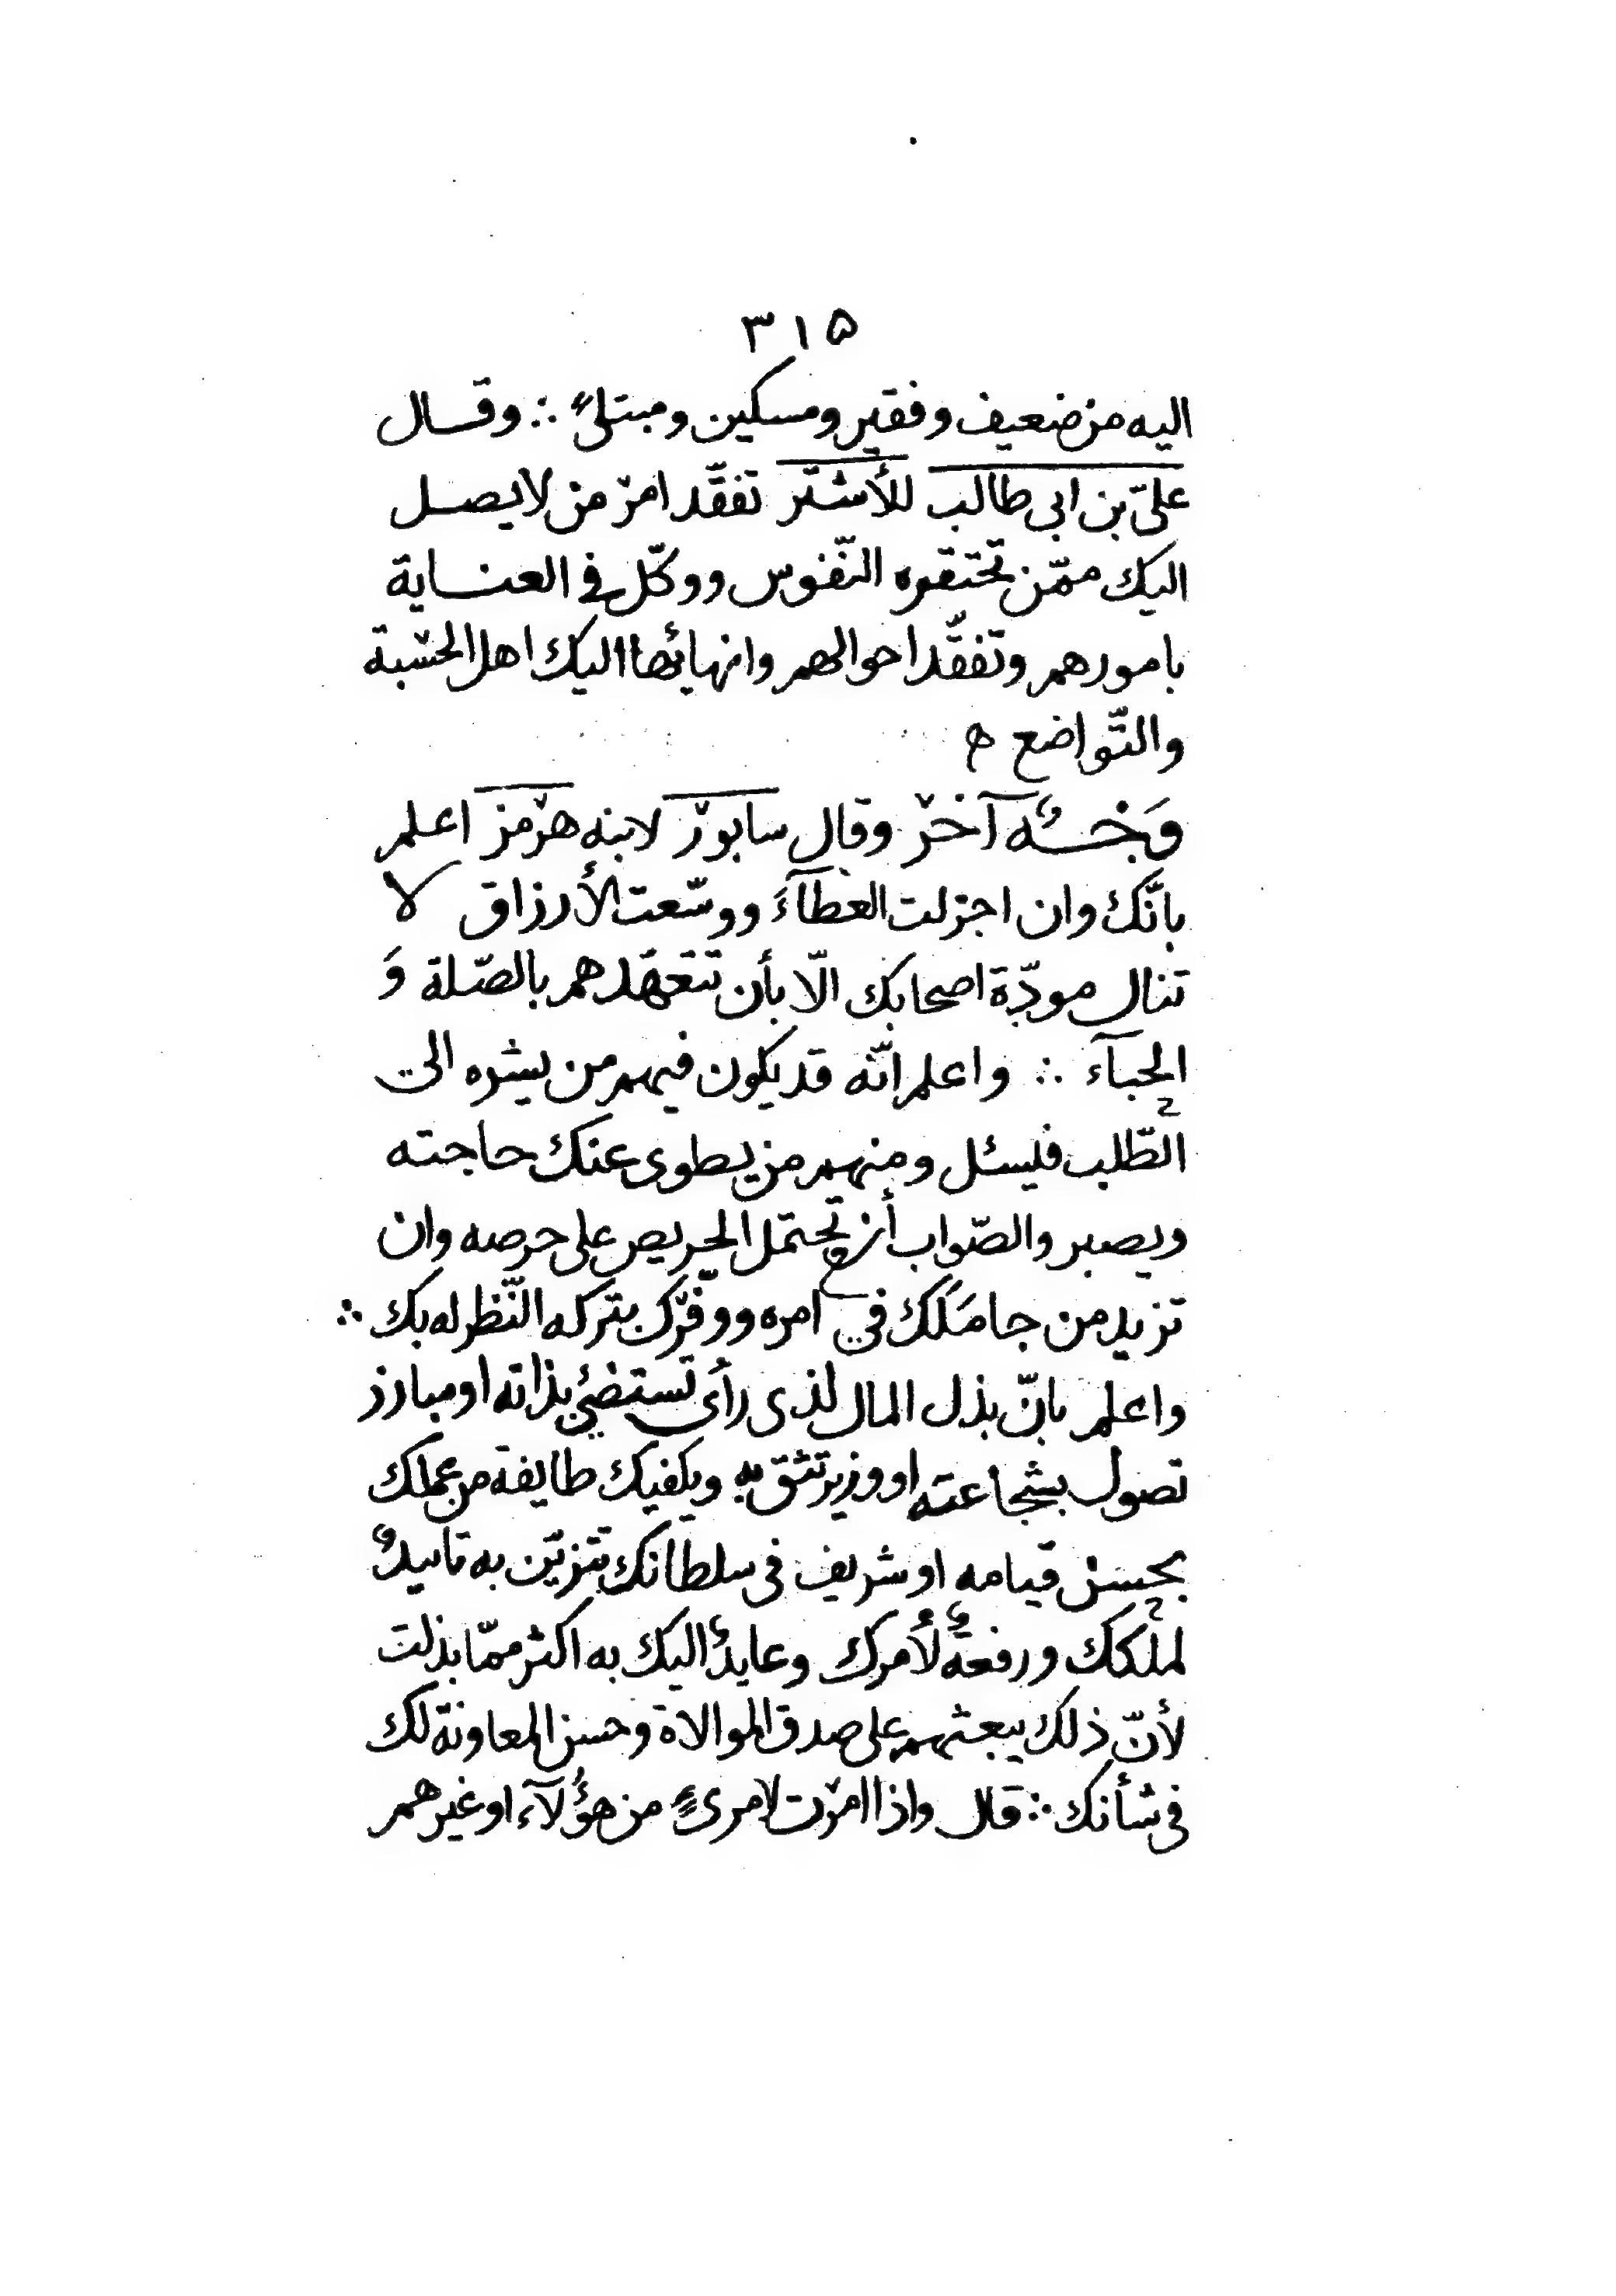 ٣١۵
اليه من ضعيف وفقير ومسكين ومبتلىً ∴ وقال
علىّ بن ابى طالب للأشتر تفقّد امر من لا يصل
اليك ممّن تحتقره النّفوس ووكّل فى العناية
بامورهم وتفقّد احوالهم وانهائها اليك اهل الحسبة
والتّواضع ه
وَجْهٌ آخر وقال سابور لابنه هرمز اعلم
بانّك وان اجزلت العطآءَ ووسّعت الأرزاق لا
تنال مودّة اصحابك الّا بأن تتعهّدهم بالصّلة وَ
الحبآء ∴ واعلم انّه قد يكون فيهم من يشره الى
الطّلب فليسئل ومنهم من يطوى عنك حاجته
ويصبر والصّواب أن تحتمل الحريص على حرصه وان
تزيد من جامَلَك في امره ووفّرك بتركه النّظر له بك ∴
واعلم بانّ بذل المال لذى رأى تستضئ بذاته او مبارز
تصول بشجاعته او وزير تثق به ويكفيك طايفة من عملك
بحسن قيامه او شريف فى سلطانك تتزيّن به تاييدٌ
لملكك ورفعةٌ لأمرك وعايدٌ اليك به اكثر ممّا بذلت
لأنّ ذلك يبعثهم على صدق الموالاة وحسن المعاونة لك
فى شأنك ∴ قال واذا امرت لامرئٍ من هؤُلآء او غيرهم